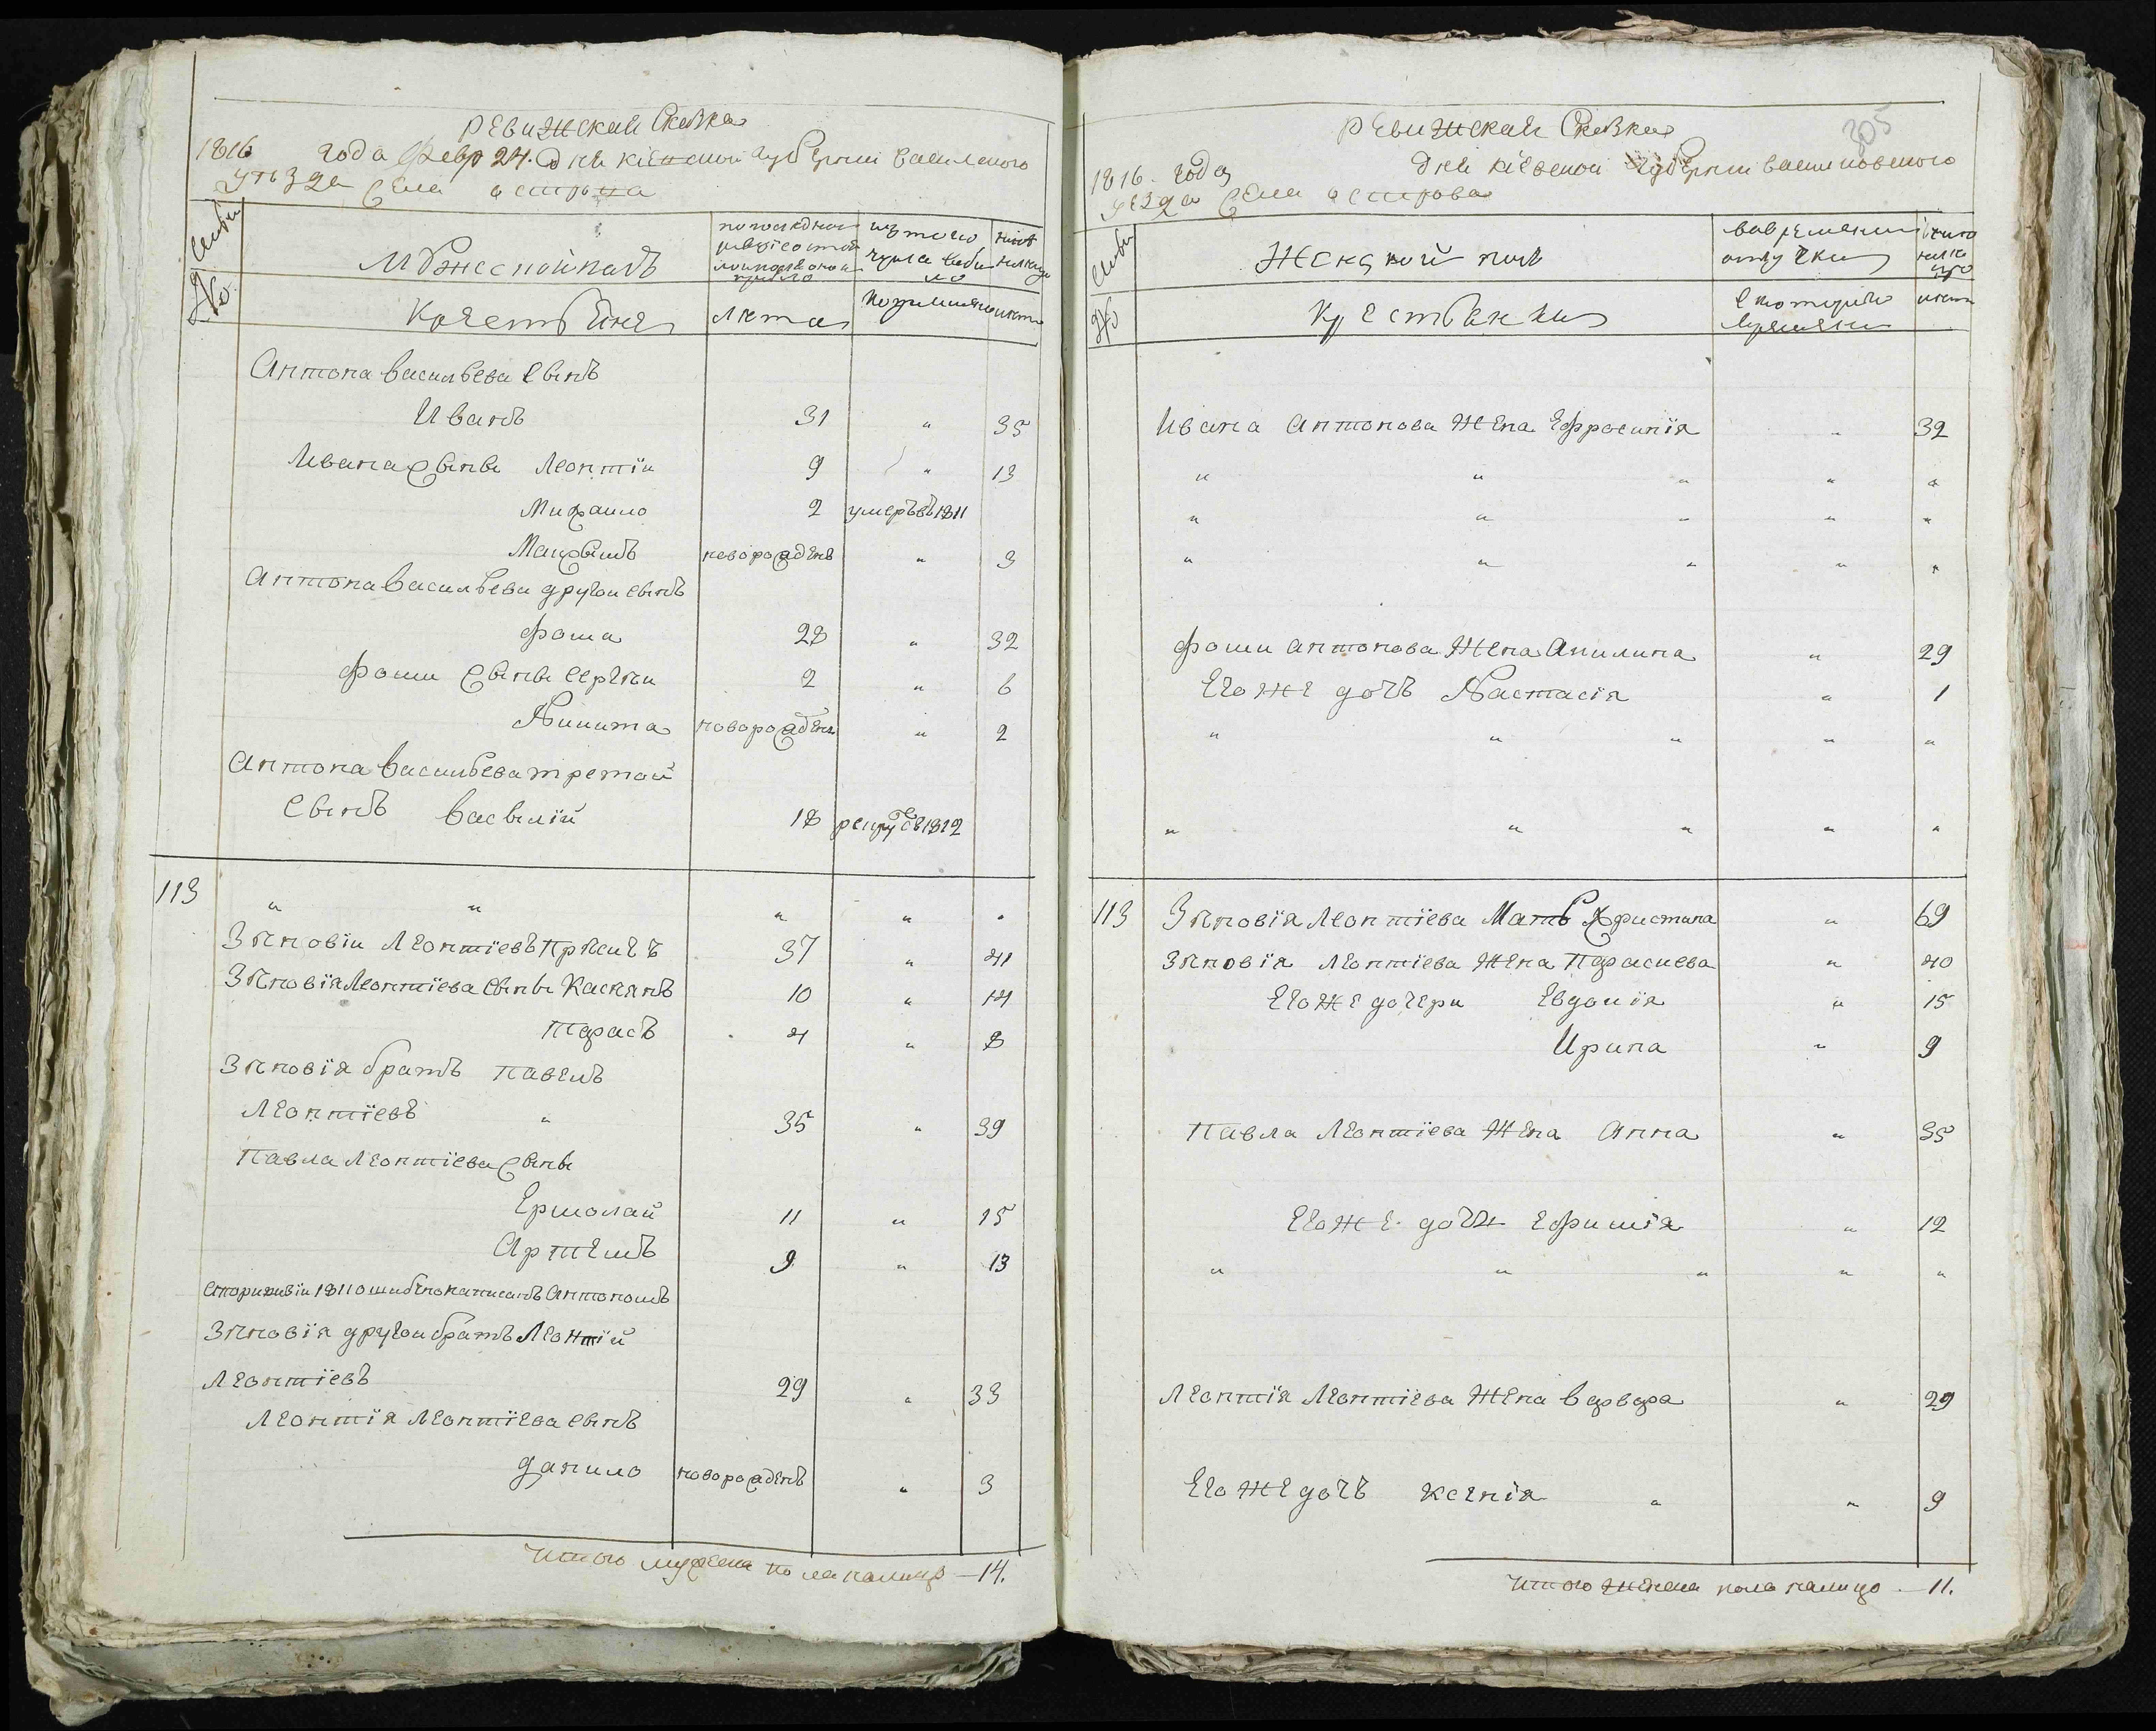 Ревижская Сказка
1816 года Февр 24. дня кіевской губерніи васильковского
уезда села острова
Семьи
№
Мужеской полъ
Крестьяне
Лета
изъ того числа выбыло
Антона васильева сынъ
Иванъ 31 „ 35
Ивана сыны Леонтіи 9 „ 13
Михаило 2 умеръ въ 1811
Максимъ новорожденъ „ 3
Антона васильева другои сынъ
фома 28 „ 32
фомы сыны сергеи 2 „ 6
Никита новорожденъ „ 2
Антона васильева третой
сынъ василій 18 рекрут въ 1812
113 „ „ „ „ „
Зѣновіи Леонтіевъ 37 „ 41
Зѣновія Леонтіева сыны Касиянъ 10 „ 14
тарасъ 4 „ 8
Зѣновія братъ павелъ
Леонтіевъ „ 35 „ 39
павла Леонтіева сыны
Ермолай 11 „ 15
Артемъ 9 „ 13
которы ревизіи 1811 ошибкою написанъ Антономъ
Зѣновія другои братъ Леонтій
Леонтіевъ 29 „ 33
Леонтія Леонтіева сынъ
данило новорожденъ „ 3
итого мужеска пола налицо — 14.
305
Ревижская Сказка
1816. года дня кіевской губерніи васильковского
уезда села острова
Семьи
№
Женской полъ
Крестьянки
во временной отлучки
с которого времени
лета
Ивана антонова жена Ефросинія „ 32
„ „ „ „ „
„ „ „ „ „
„ „ „ „ „
фомы антонова жена Акилина „ 29
Его же дочь Настасія „ 1
„ „ „ „ „
„ „ „ „ „
113 Зѣновія Леонтіева Мать Христина „ 69
Зѣновія Леонтіева жена Парасиева „ 40
Его же дочери Евдокія „ 15
Ирина „ 9
павла Леонтіева жена Анна „ 35
Его же дочь Ефимія „ 12
„ „ „ „ „
Леонтія Леонтіева жена варвара „ 29
Его же дочь ксенія „ „ 9
итого женска пола налицо — 11.